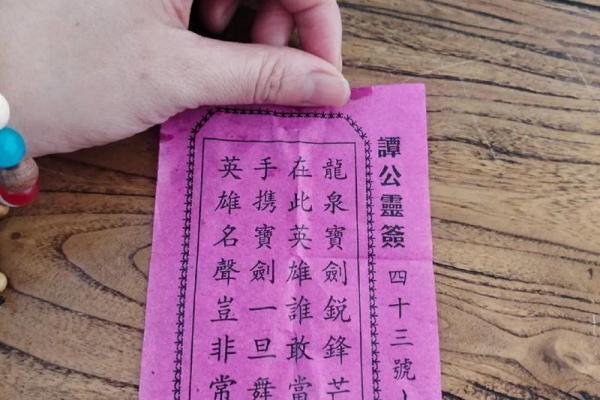 譚公靈簽 四十三號
龍泉寶劍鋭鋒芒
在此英雄誰敢當
手携寶劍一旦舞
英雄名聲豈非常